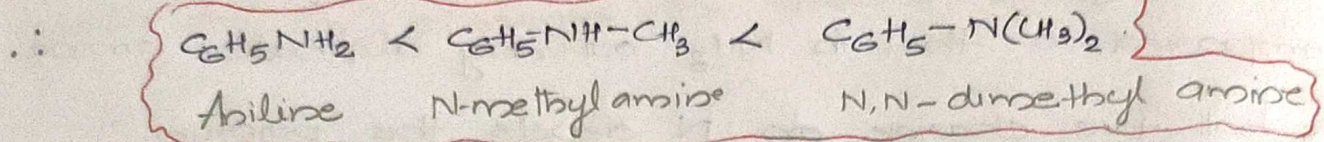 ∴ C6H5NH2 < C6H5-NH-CH3 < C6H5-N(CH3)2.
Aniline N-methyl amine N,N-dimethyl amine